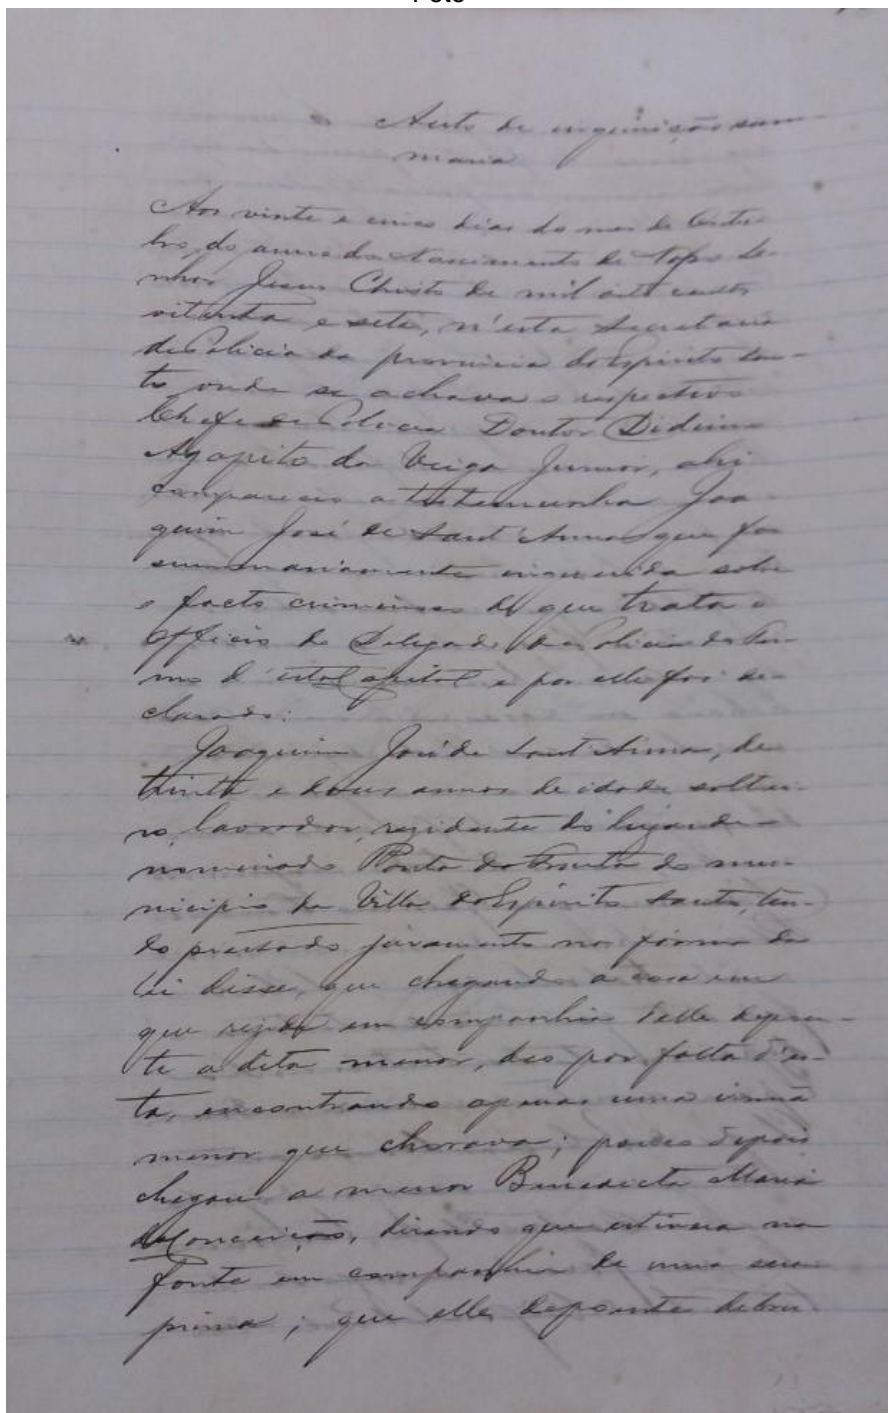 Auto de inquirição sum-
maria
Aos vinte e cinco dias do mes de Outu-
bro, do anno do Nascimento de Nosso Se-
nhor Jesus Christo de mil oito centos
oitenta e sete, n'esta Secretaria
de Policia da provincia do Espirito San-
to onde se achava o respectivo
Chefe de Policia Doutor Didimo
Agapito da Veiga Junior, ahi
compareceo a testemunha Joa-
quim José de Sant'Anna que foi
summariamente inquerida sobre
o facto criminoso de que trata o
Officio do Delegado de Policia do Ter-
mo d'esta Capital e por elle foi de-
clarado:
Joaquim José de Sant'Anna, de
trinta e dous annos de idade soltei-
ro, lavrador, rezidente do lugar de-
nominado Ponta da Fructa do mu-
nicipio da Villa do Espirito Santo, ten-
do prestado juramento na forma da
lei disse, que chegando a casa em
que rezide em companhia delle depoen-
te a dita menor, deo por falta d'es-
ta, encontrando apenas uma irmã
menor que chorava; pouco depois
chegou a menor Benedicta Maria
da Conceição, dizendo que estivera na
fonte em companhia de uma sua
prima; que elle depoente